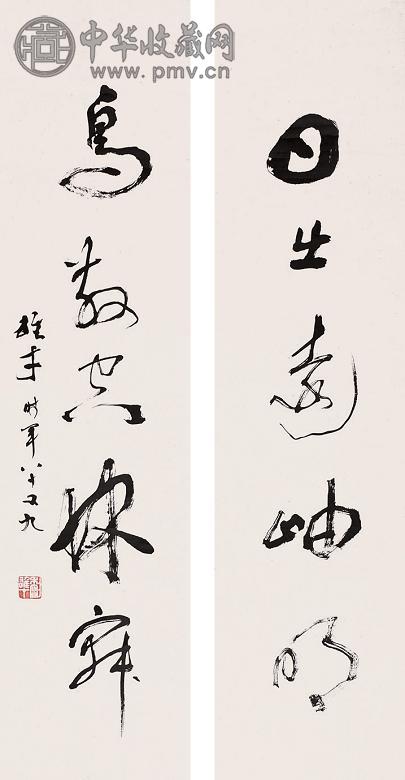 中华收藏网
www.pmv.cn
日出遠岫明
鳥散空林寂
雄才时年八十又九